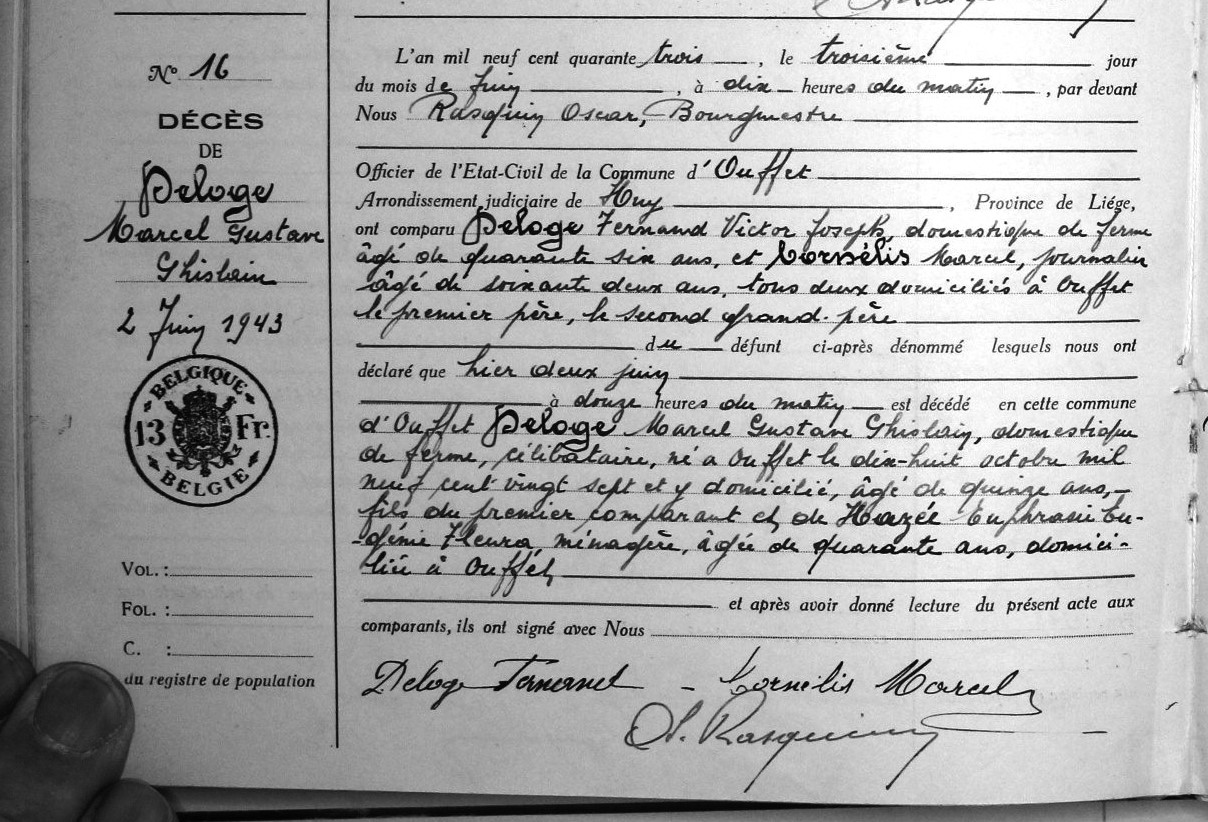 N° 16
DÉCÈS
DE
Deloge
Marcel Gustave
Ghislain
2 Juin 1943
BELGIQUE
13 Fr.
BELGIE
VOL. :
FOL. :
C. :
du registre de population
L'an mil neuf cent quarante trois, le troisième jour
du mois de Juin, à dix heures du matin, par devant
Nous Rasquin Oscar, Bourgmestre
Officier de l'Etat-Civil de la Commune d'Ouffet
Arrondissement judiciaire de Huy, Province de Liége,
ont comparu Deloge Fernand Victor Joseph, domestique de ferme
âgé de quarante six ans, et Cornélis Marcel, journalier
âgé de soixante deux ans, tous deux domiciliés à Ouffet
le premier père, le second grand-père
du défunt ci-après dénommé lesquels nous ont
déclaré que hier deux juin
à douze heures du matin est décédé en cette commune
d'Ouffet Deloge Marcel Gustave Ghislain, domestique
de ferme, célibataire, né a Ouffet le dix-huit octobre mil
neuf cent vingt sept et y domicilié, âgé de quinze ans,
fils du premier comparant et de Hazée Euphrasie Eu-
-génie Fleura, ménagère, âgée de quarante ans, domici-
liée à Ouffet,
et après avoir donné lecture du présent acte aux
comparants, ils ont signé avec Nous
Deloge Fernand - Kornélis Marcel
O. Rasquin